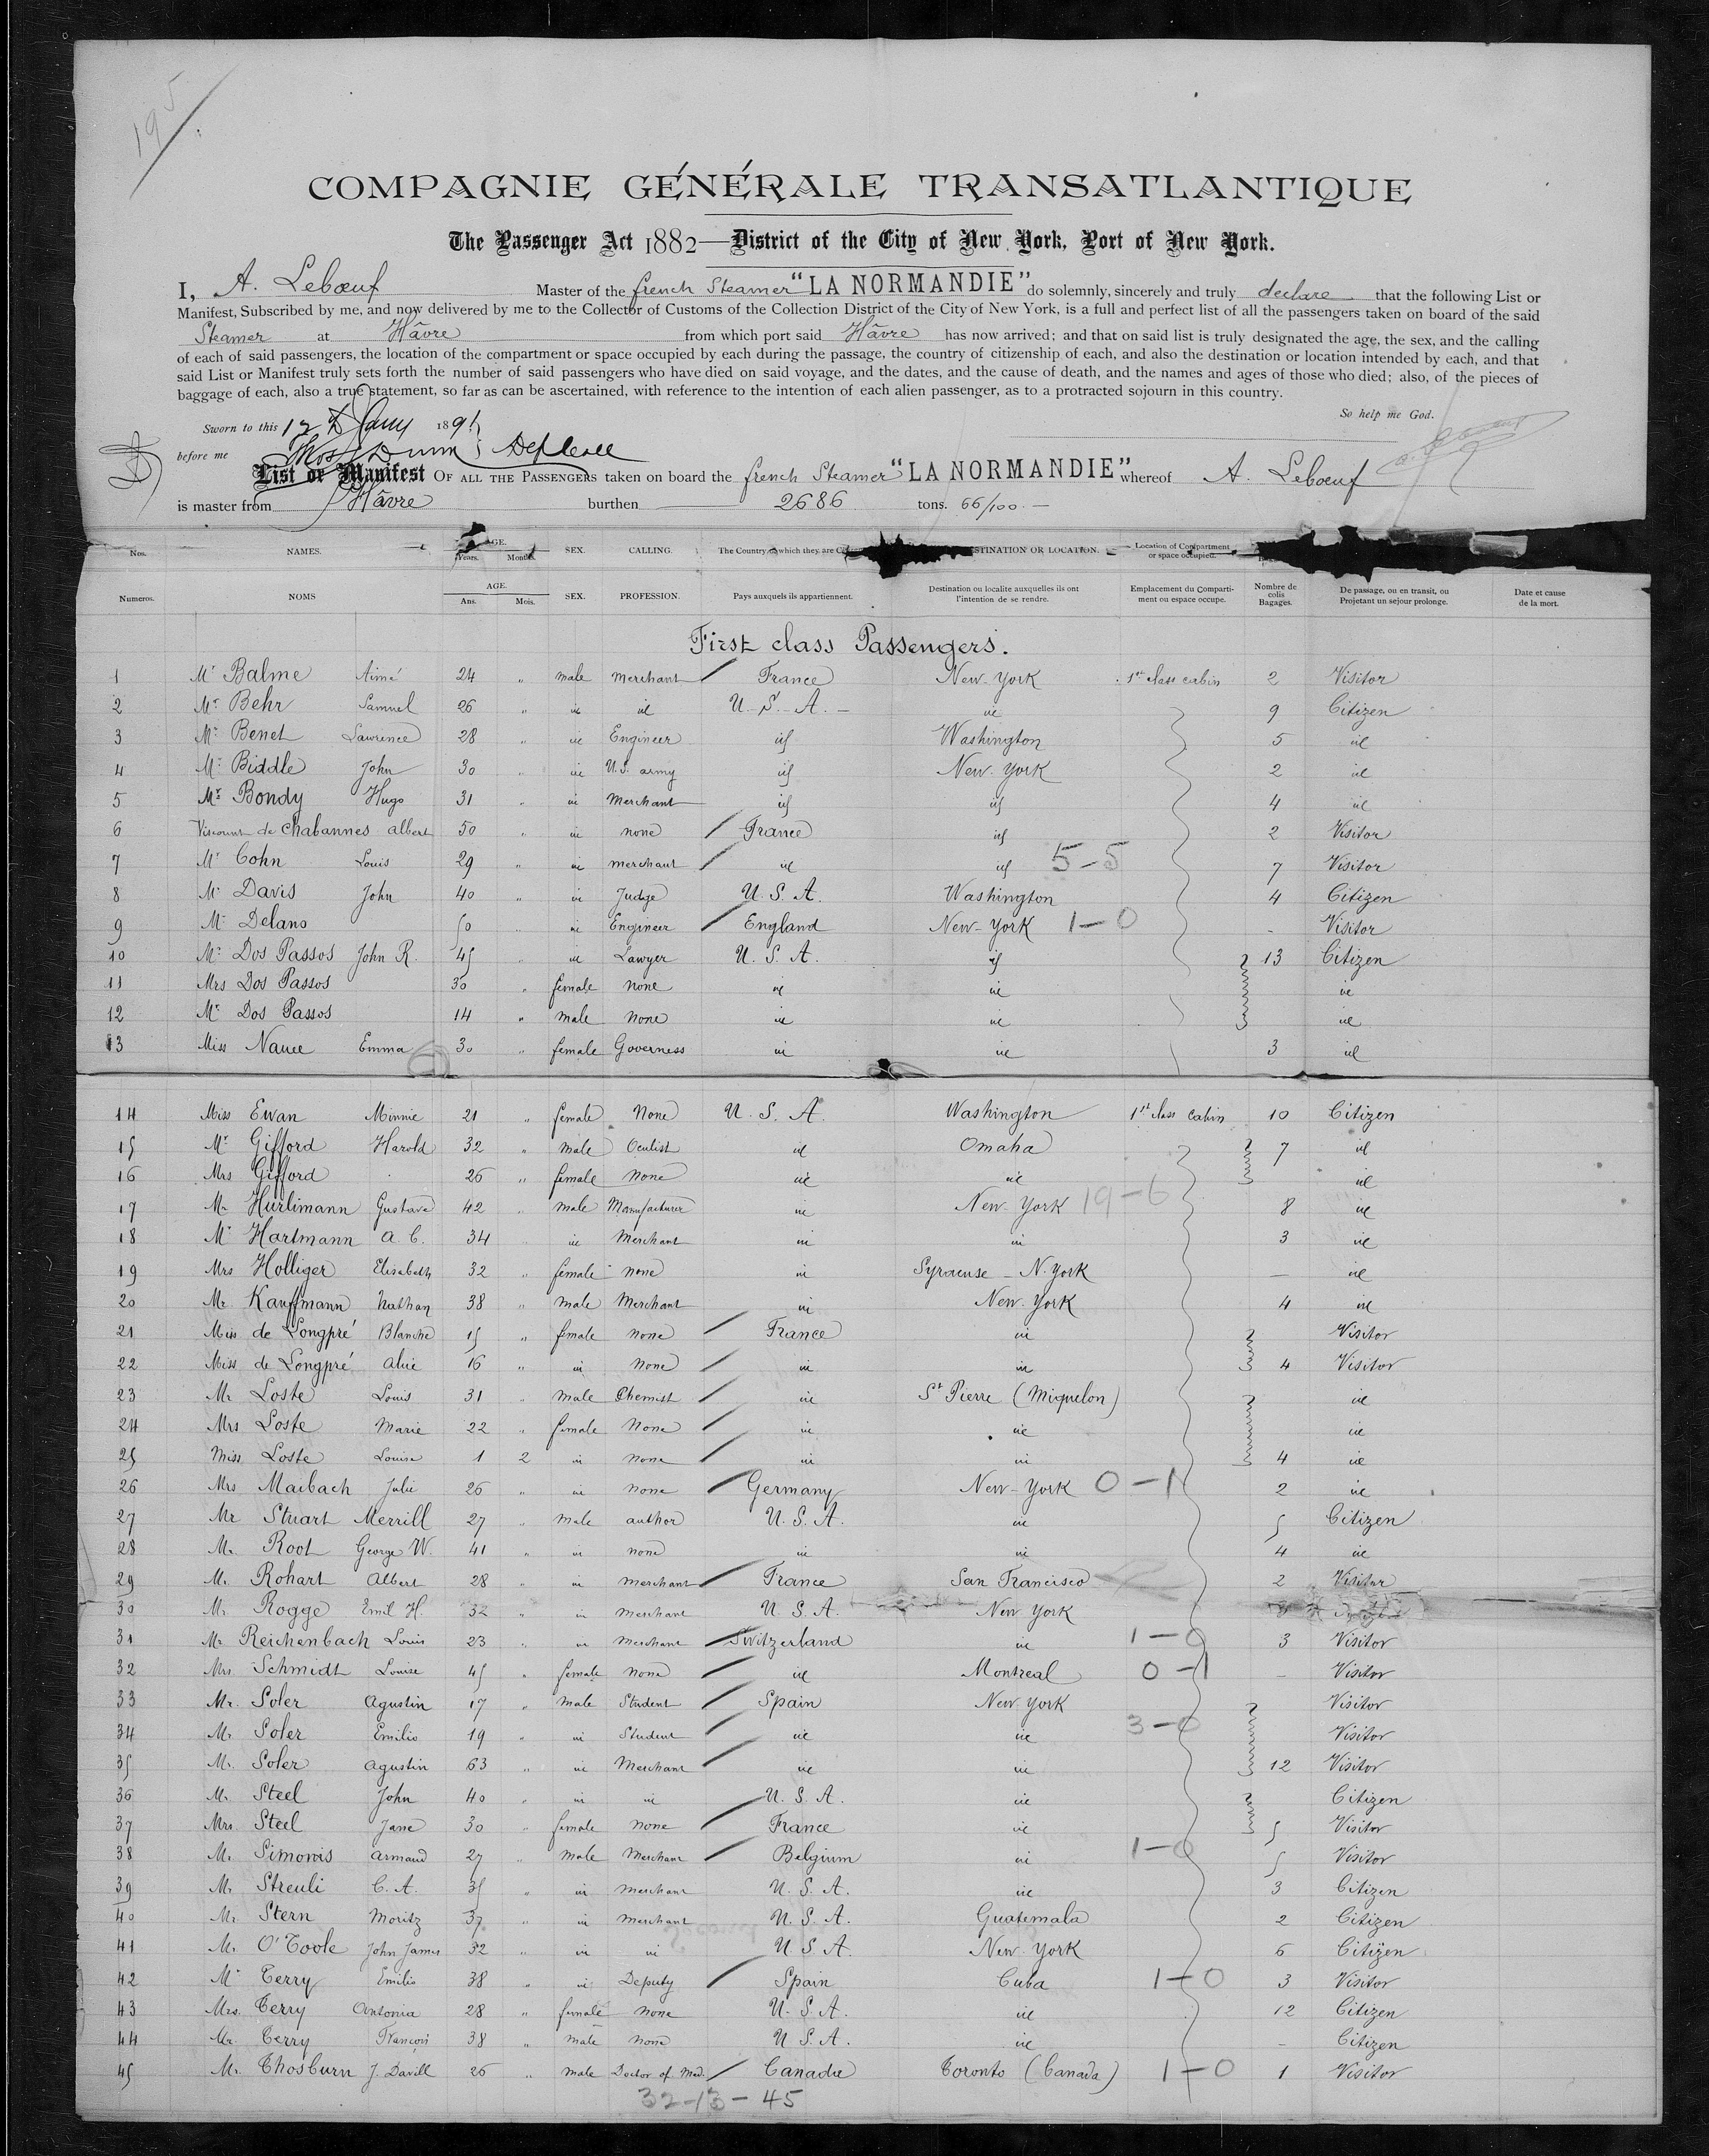 195
COMPAGNIE GÉNÉRALE TRANSATLANTIQUE
The Passenger Act 1882—District of the City of New York, Port of New York.
I, A. Lebœuf Master of the french Steamer "LA NORMANDIE" do solemnly, sincerely and truly declare that the following List or
Manifest, Subscribed by me, and now delivered by me to the Collector of Customs of the Collection District of the City of New York, is a full and perfect list of all the passengers taken on board of the said
Steamer at Hâvre from which port said Hâvre has now arrived; and that on said list is truly designated the age, the sex, and the calling
of each of said passengers, the location of the compartment or space occupied by each during the passage, the country of citizenship of each, and also the destination or location intended by each, and that
said List or Manifest truly sets forth the number of said passengers who have died on said voyage, and the dates, and the cause of death, and the names and ages of those who died; also, of the pieces of
baggage of each, also a true statement, so far as can be ascertained, with reference to the intention of each alien passenger, as to a protracted sojourn in this country.
So help me God.
Sworn to this 12 Jany 1891
before me Thos Dunn
List or Manifest OF ALL THE PASSENGERS taken on board the french Steamer "LA NORMANDIE" whereof A. Lebœuf
is master from Hâvre burthen 2686 tons. 66/100
Nos. NAMES. AGE. Years. Months. SEX. CALLING. The Country which they are DESTINATION OR LOCATION. Location of Compartment or space occupied.
Numeros. NOMS AGE. Ans. Mois. SEX. PROFESSION. Pays auxquels ils appartiennent. Destination ou localite auxquelles ils ont l'intention de se rendre. Emplacement du Compartiment ou espace occupe. Nombre de colis Bagages. De passage, ou en transit, ou Projetant un sejour prolonge. Date et cause de la mort.
First class Passengers.
1 Mr Balme Aimé 24 " male merchant France New-York 1st class cabin 2 Visitor
2 Mr Behr Samuel 26 " id id U.S.A. id 9 Citizen
3 Mr Benet Lawrence 28 " id Engineer id Washington 5 id
4 Mr Biddle John 30 " id U.S. army id New-York 2 id
5 Mr Bondy Hugo 31 " id Merchant id id 4 id
6 Viscount de Chabannes Albert 50 " id none France id 2 Visitor
7 Mr Cohn Louis 29 " id merchant id id 5-5 7 Visitor
8 Mr Davis John 40 " id Judge U.S.A. Washington 4 Citizen
9 Mr Delano 50 " id Engineer England New-York 1-0 - Visitor
10 Mr Dos Passos John R. 45 " id Lawyer U.S.A. id 13 Citizen
11 Mrs Dos Passos 30 " female none id id id
12 Mr Dos Passos 14 " male none id id id
13 Miss Nauce Emma 30 " female Governess id id 3 id
14 Miss Ewan Minnie 21 " female None U.S.A. Washington 1st class cabin 10 Citizen
15 Mr Gifford Harold 32 " male Oculist id Omaha 7 id
16 Mrs Gifford 26 " female none id id id
17 Mr Hurlimann Gustave 42 " male Manufacturer id New-York 19-6 8 id
18 Mr Hartmann A. C. 34 " id Merchant id id 3 id
19 Mrs Holliger Elisabeth 32 " female none id Syracuse - N. York — id
20 Mr Kauffmann Nathan 38 " male Merchant id New-York 4 id
21 Miss de Longpré Blanche 15 " female none France id Visitor
22 Miss de Longpré Alice 16 " id none id id 4 Visitor
23 Mr Loste Louis 31 " male Chemist id St Pierre (Miquelon) id
24 Mrs Loste Marie 22 " female None id id id
25 Miss Loste Louise 1 2 id none id id 4 id
26 Mrs Maibach Julie 26 " id none Germany New-York 0-1 2 id
27 Mr Stuart Merrill 27 " male author U.S.A. id 5 Citizen
28 Mr Root George W. 41 " id none id id 4 id
29 Mr Rohart Albert 28 " id merchant France San Francisco 2 Visitor
30 Mr Rogge Emil H. 32 " id merchant U.S.A. New York
31 Mr Reichenbach Louis 23 " id merchant Switzerland id 1-0 3 Visitor
32 Mrs Schmidt Louise 45 " female none id Montreal 0-1 — Visitor
33 Mr Soler Agustin 17 " male Student Spain New York Visitor
34 Mr Soler Emilio 19 " id Student id id 3-0 Visitor
35 Mr Soler Agustin 63 " id Merchant id id 12 Visitor
36 Mr Steel John 40 " id id U.S.A. id Citizen
37 Mrs Steel Jane 30 " female none France id 5 Visitor
38 Mr Simonis Armand 27 " male Merchant Belgium id 1-0 5 Visitor
39 Mr Streuli C. A. 35 " id merchant U.S.A. id 3 Citizen
40 Mr Stern Moritz 37 " id merchant U.S.A. Guatemala 2 Citizen
41 Mr O'Toole John James 32 " id id U.S.A. New York 6 Citizen
42 Mr Terry Emilio 38 " id Deputy Spain Cuba 1-0 3 Visitor
43 Mrs Terry Antonia 28 " female none U.S.A. id 12 Citizen
44 Mr Terry François 38 " male none U.S.A. id - Citizen
45 Mr Thosburn J. Davill 26 " male Doctor of Med. Canada Toronto (Canada) 1-0 1 Visitor
32-13-45